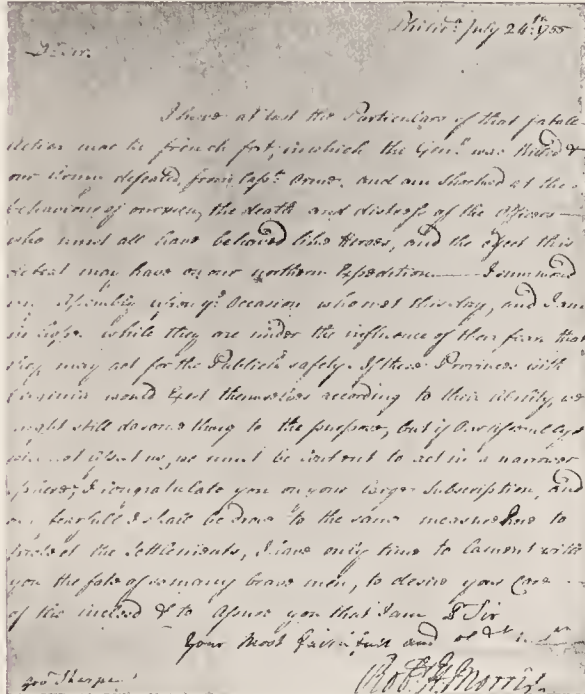 Philidᵃ July 24:ᵗʰ 1755
Dr Sir.
I have at last the Particulars of that fatale
Action near the french fort, in which the Genˡ was Killed &
our Army defeated, from Capᵗ Orme. and am Shocked at the
behaviour of our men, the death and distress of the Officers
who must all have behaved like Heroes, and the effect this
defeat may have on our northern Expedition—I summond
my Assembly upon yᵉ Occasion who met this day, and I am
in hopes while they are under the influence of their fears that
they may act for the Publick safety. If these Provinces with
Virginia would Exert themselves according to their ability, we
might still do some thing to the purpose, but if Our Assemblys
will not assist us, we must be content to act in a narrower
sphere, I congratulate you on your large Subscription, and
am fearfull I shall be drove to the same measure here to
protect the Settlements, I have only time to lament with
you the fate of so many brave men, to desire your Care
of the inclosd & to assure you that I am Dʳ Sir
Your Most Faithfull and
Govʳ Sharpe.
Robᵗ H. Morris